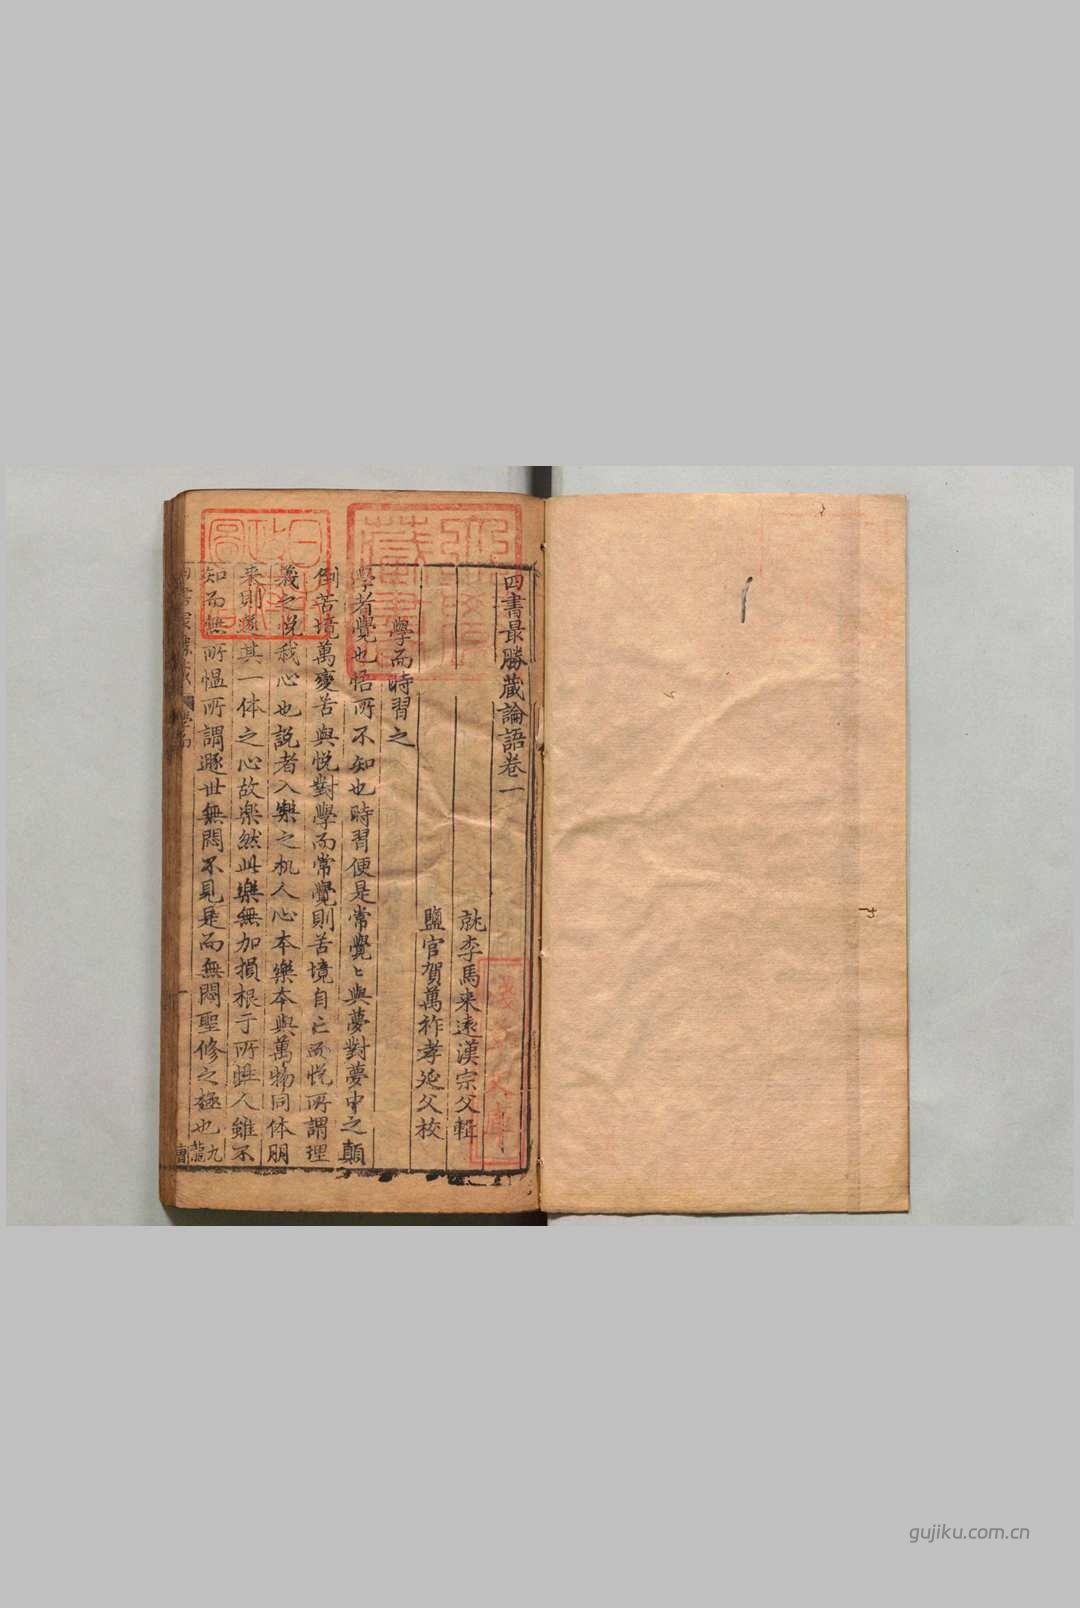 四書最勝藏論語卷一
就李馬来遠漢宗父輯
鹽官賀萬祚孝延父校
學而時習之
學者覺也悟所不知也時習便是常覺〻與夢對夢中之顛
倒苦境萬變苦與悦對學而常覺則苦境自亡所悦所謂理
義之悦我心也説者入樂之机人心本樂本與萬物同体朋
来則遂其一体之心故楽然此樂無加損根于所性人雖不
知而無所愠所謂遯世無悶不見是而無悶聖修之極也九
龍
gujiku.com.cn